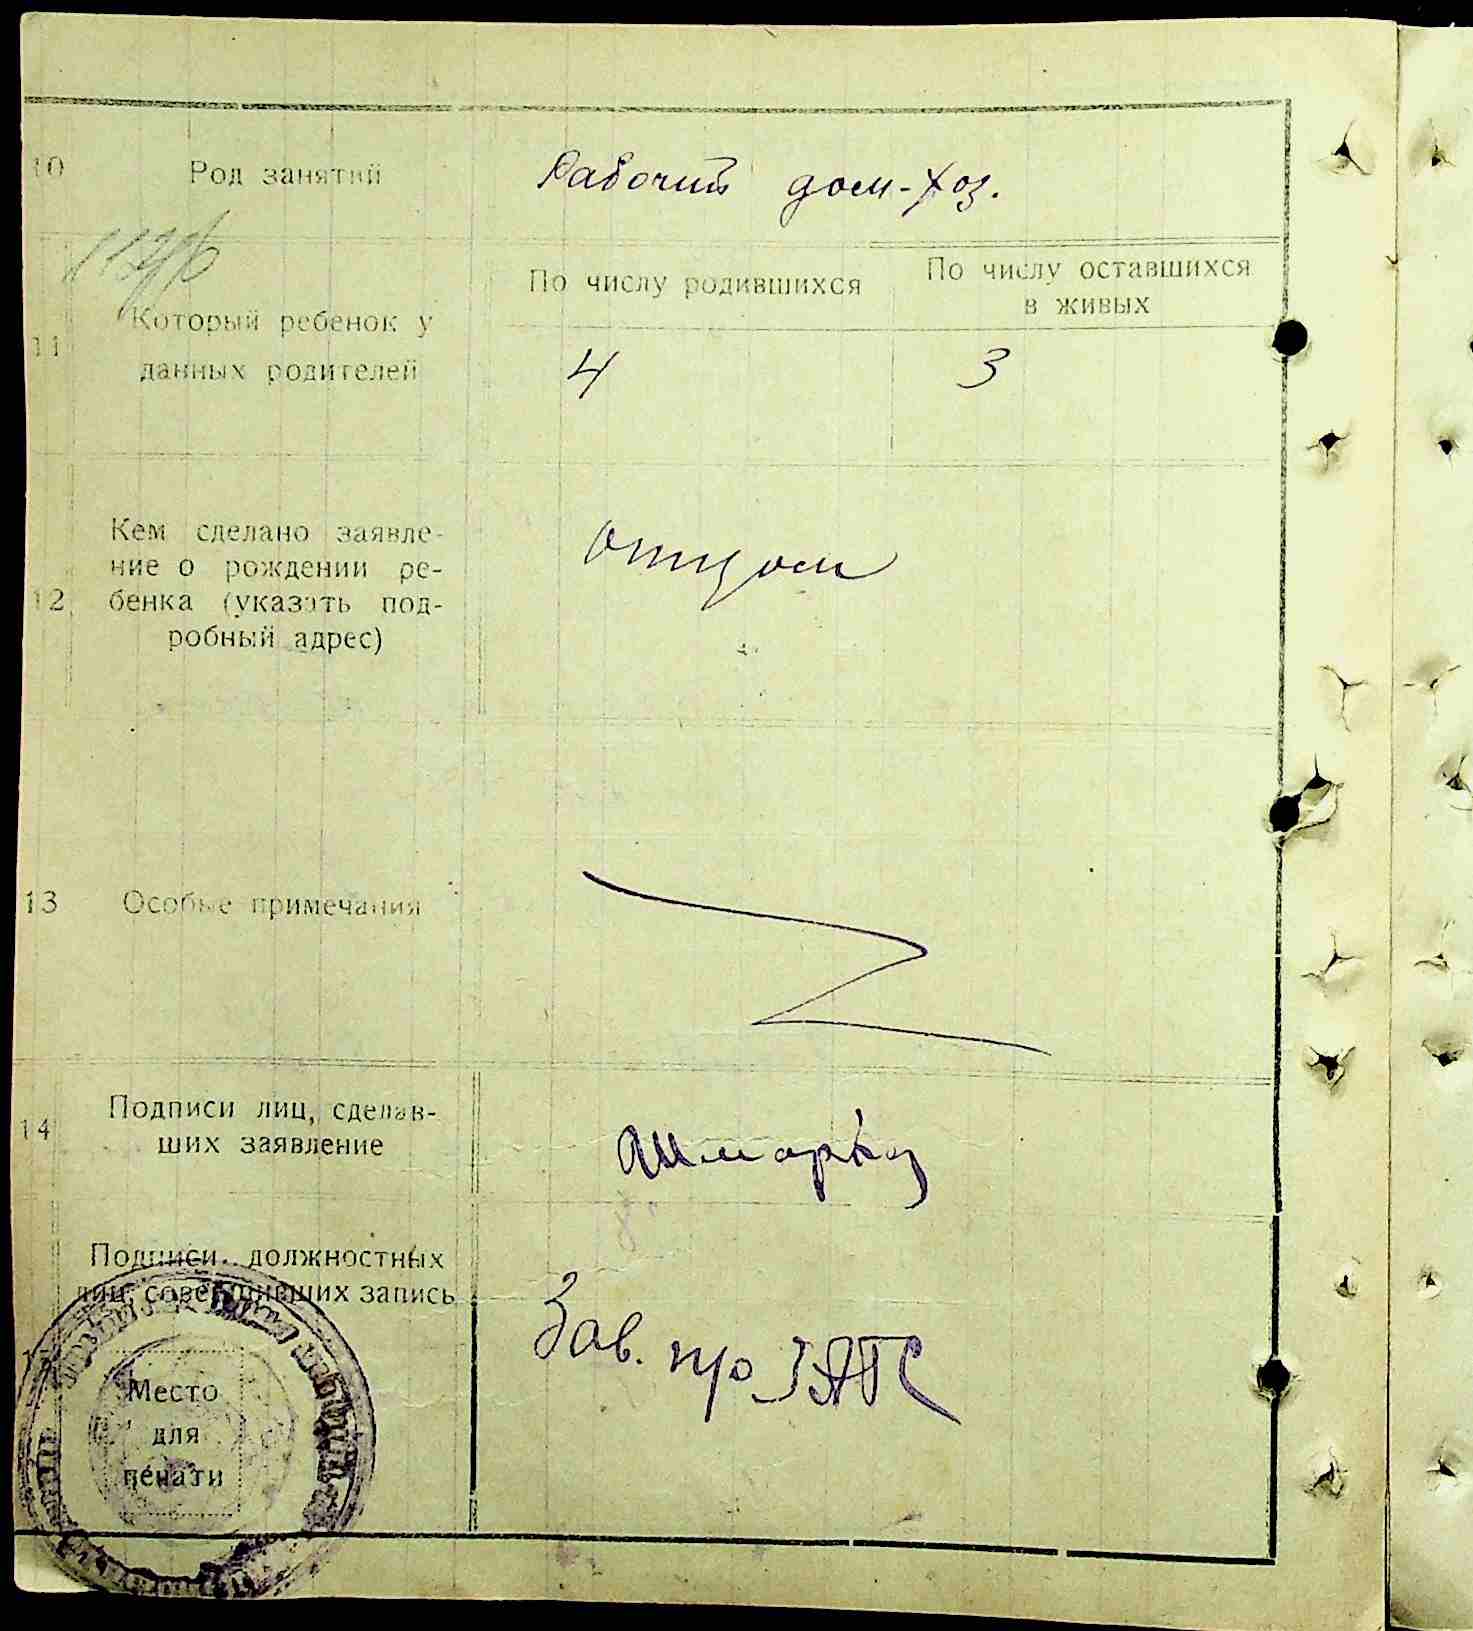 10 Род занятий Рабочий дом-хоз.
По числу родившихся По числу оставшихся
в живых
11 Который ребенок у
данных родителей 4 3
Кем сделано заявле-
ние о рождении ре-
12 бенка (указать под-
робный адрес)
отцом
13 Особые примечания
14 Подписи лиц, сделав-
ших заявление
Подписи должностных
лиц, совершивших запись
Зав. п/о ЗАГС
Место
для
печати